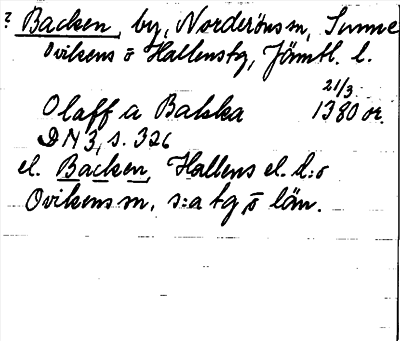 ? Backen, by, Norderöns sn, Sunne
Ovikens o Hallens tg, Jämtl. l.
21/3
Olaff a Bakka 1380 or.
DN 3, s. 326
el. Backen, Hallens el. d:o
Ovikens sn, s:a tg o län.